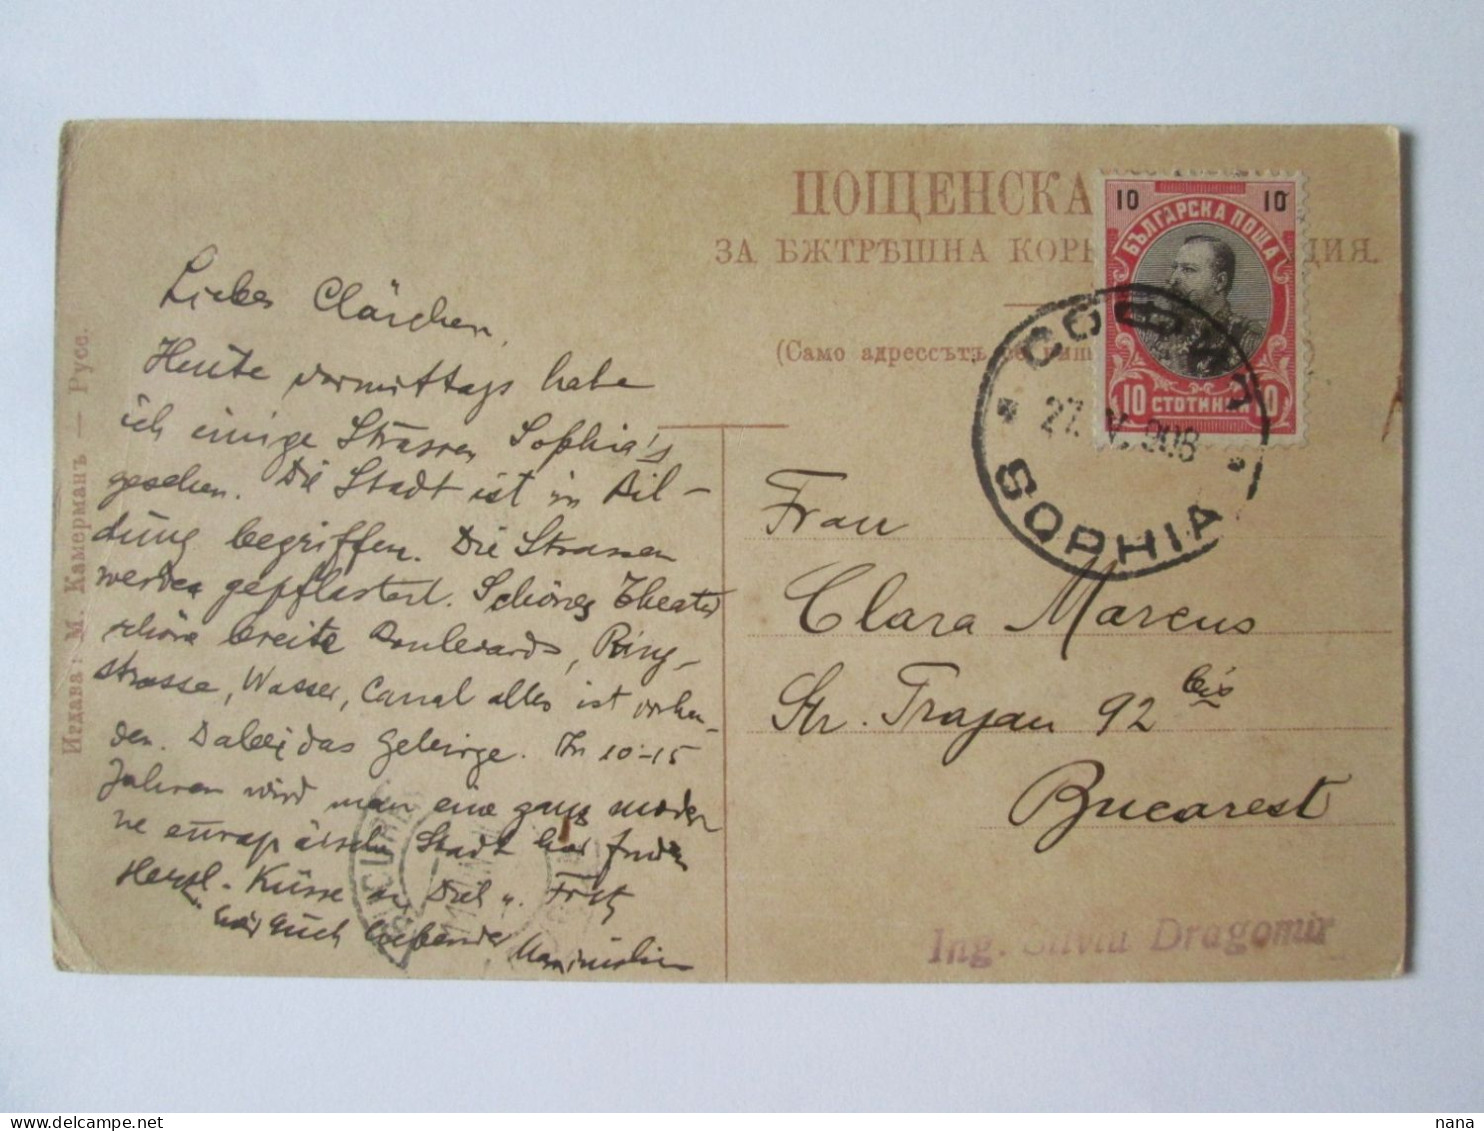 ПОЩЕНСКА
ЗА ВѪТРѢШНА КОР
(Само адрессътъ
10 10
БЪЛГАРСКА ПОЩА
10 СТОТИНКИ 10
СОФИЯ
27. V. 908
SOPHIA
Издава: М. Камерманъ — Руссе.
Liebes Clärchen,
Heute vormittags habe
ich einige Strassen Sophia's
gesehen. Die Stadt ist in Bil-
dung begriffen. Die Strassen
werden gepflastert. Schönes Theater
schöne breite Boulevards, Ring-
strasse, Wasser, Canal alles ist vorhan-
den. Dabei das Gebirge. In 10-15
Jahren wird man eine ganz moder
ne europäische Stadt hier finden
Herzl. Küsse an Dich u. Fritz
Euch liebender
Frau
Clara Marcus
Str. Trajan 92 bis
Bucarest
Ing. Silvia Dragomir
nana